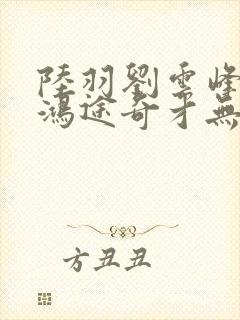 陸羽劉雲峰
鴻途奇才無
方丑丑